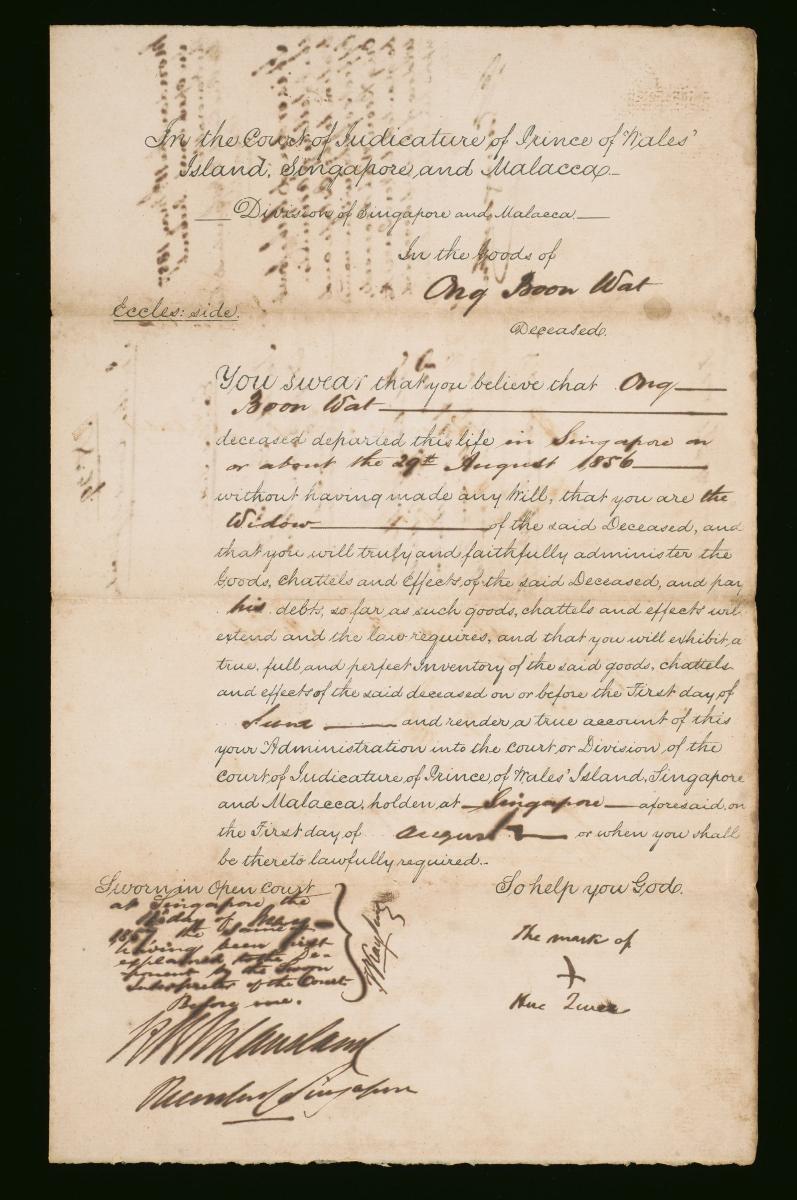 In the Court of Judicature of Prince of Wales'
Island, Singapore, and Malacca
Division of Singapore and Malacca
In the Goods of
Ong Boon Wat
Eccles: side.
Deceased.
You swear that you believe that Ong
Boon Wat
deceased departed this life in Singapore on
or about the 29th August 1856
without having made any Will, that you are the
Widow of the said Deceased, and
that you will truly and faithfully administer the
Goods, chattels and Effects, of the said Deceased, and pay
his debts, so far as such goods, chattels and effects will
extend and the law requires, and that you will exhibit, a
true, full, and perfect Inventory of the said goods, chattels
and effects of the said deceased on or before the First day of
June and render, a true account of this
your Administration into the Court, or Division, of the
Court of Judicature, of Prince, of Wales' Island, Singapore
and Malacca, holden, at Singapore aforesaid, on
the First day, of August or when you shall
be thereto lawfully required.
Sworn in Open Court
at Singapore the
day of
1857 the same
having been first
explained to the De-
ponent by the Sworn
Interpreter of the Court
Before me.
Recorder Singapore
So help you God.
The mark of